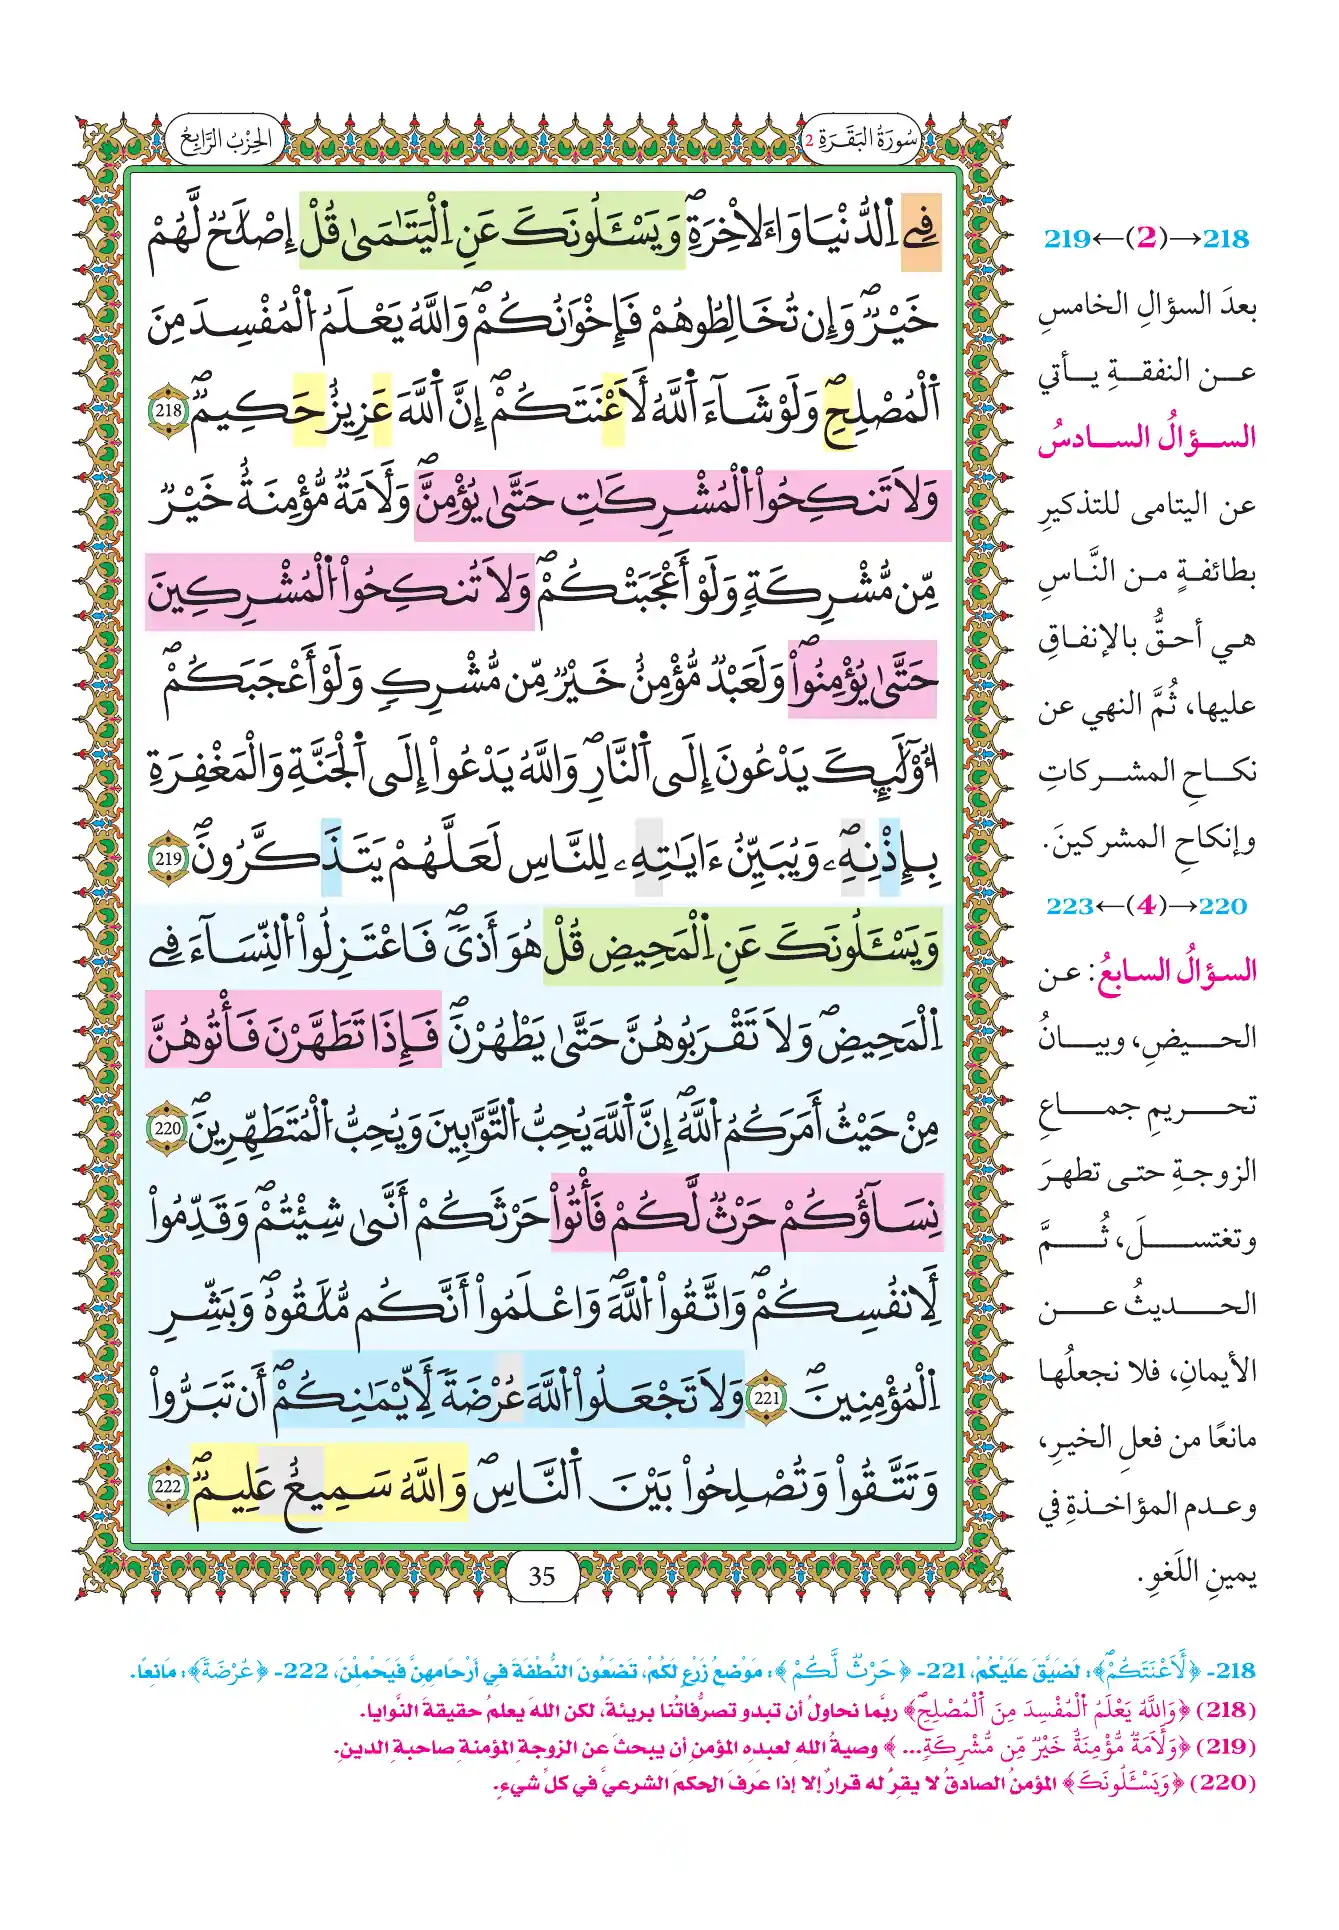 سُورَةُ البَقَرَةِ 2
الحِزْبُ الرَّابِعُ
فِے اِ۬لدُّنْيَا وَالَاخِرَةِۖ وَيَسْـَٔلُونَكَ عَنِ اِ۬لْيَتَٰمَىٰ قُلْ إِصْلَٰحٞ لَّهُمْ
خَيْرٞۖ وَإِن تُخَالِطُوهُمْ فَإِخْوَٰنُكُمْۖ وَاللَّهُ يَعْلَمُ اُ۬لْمُفْسِدَ مِنَ
اَ۬لْمُصْلِحِۖ وَلَوْ شَآءَ اَ۬للَّهُ لَأَعْنَتَكُمْۖ إِنَّ اَ۬للَّهَ عَزِيزٌ حَكِيمٞۖ 218
وَلَا تَنكِحُواْ اُ۬لْمُشْرِكَٰتِ حَتَّىٰ يُؤْمِنَّۖ وَلَأَمَةٞ مُّؤْمِنَةٌ خَيْرٞ
مِّن مُّشْرِكَةٖ وَلَوْ أَعْجَبَتْكُمْۖ وَلَا تُنكِحُواْ اُ۬لْمُشْرِكِينَ
حَتَّىٰ يُؤْمِنُواْۖ وَلَعَبْدٞ مُّؤْمِنٌ خَيْرٞ مِّن مُّشْرِكٖ وَلَوْ أَعْجَبَكُمْۖ
أُوْلَٰٓئِكَ يَدْعُونَ إِلَى اَ۬لنَّارِۖ وَاللَّهُ يَدْعُواْ إِلَى اَ۬لْجَنَّةِ وَالْمَغْفِرَةِ
بِإِذْنِهِۦۖ وَيُبَيِّنُ ءَايَٰتِهِۦ لِلنَّاسِ لَعَلَّهُمْ يَتَذَكَّرُونَۖ 219
وَيَسْـَٔلُونَكَ عَنِ اِ۬لْمَحِيضِ قُلْ هُوَ أَذٗىۖ فَاعْتَزِلُواْ اُ۬لنِّسَآءَ فِے
اِ۬لْمَحِيضِۖ وَلَا تَقْرَبُوهُنَّ حَتَّىٰ يَطْهُرْنَۖ فَإِذَا تَطَهَّرْنَ فَأْتُوهُنَّ
مِنْ حَيْثُ أَمَرَكُمُ اُ۬للَّهُۖ إِنَّ اَ۬للَّهَ يُحِبُّ اُ۬لتَّوَّٰبِينَ وَيُحِبُّ اُ۬لْمُتَطَهِّرِينَۖ 220
نِسَآؤُكُمْ حَرْثٞ لَّكُمْ فَأْتُواْ حَرْثَكُمْ أَنَّىٰ شِئْتُمْۖ وَقَدِّمُواْ
لِأَنفُسِكُمْۖ وَاتَّقُواْ اُ۬للَّهَۖ وَاعْلَمُواْ أَنَّكُم مُّلَٰقُوهُۖ وَبَشِّرِ
اِ۬لْمُؤْمِنِينَۖ 221 وَلَا تَجْعَلُواْ اُ۬للَّهَ عُرْضَةٗ لِّأَيْمَٰنِكُمْۖ أَن تَبَرُّواْ
وَتَتَّقُواْ وَتُصْلِحُواْ بَيْنَ اَ۬لنَّاسِۖ وَاللَّهُ سَمِيعٌ عَلِيمٞۖ 222
35
218→(2)←219
بعدَ السؤالِ الخامسِ
عن النفقةِ يأتي
السؤالُ السادسُ
عن اليتامى للتذكيرِ
بطائفةٍ من النَّاسِ
هي أحقُّ بالإنفاقِ
عليها، ثُمَّ النهي عن
نكاحِ المشركاتِ
وإنكاحِ المشركينَ.
220→(4)←223
السؤالُ السابعُ: عن
الحيضِ، وبيانُ
تحريمِ جماعِ
الزوجةِ حتى تطهرَ
وتغتسلَ، ثُمَّ
الحديثُ عن
الأيمانِ، فلا نجعلُها
مانعًا من فعلِ الخيرِ،
وعدم المؤاخذةِ في
يمينِ اللَغوِ.
218- ﴿لَأَعْنَتَكُمْۖ﴾: لضَيَّقَ عَلَيْكُمْ، 221- ﴿حَرْثٞ لَّكُمْ﴾: مَوْضعُ زَرْعٍ لَكُمْ، تَضَعُونَ النُّطْفَةَ فِي أَرْحَامِهِنَّ فَيَحْمِلْنَ، 222- ﴿عُرْضَةٗ﴾: مَانِعًا.
(218) ﴿وَاللَّهُ يَعْلَمُ اُ۬لْمُفْسِدَ مِنَ اَ۬لْمُصْلِحِۖ﴾ ربَّما نحاولُ أن تبدو تصرُّفاتُنا بريئةً، لكن اللهَ يعلمُ حقيقةَ النَّوايا.
(219) ﴿وَلَأَمَةٞ مُّؤْمِنَةٌ خَيْرٞ مِّن مُّشْرِكَةٖ... ﴾ وصيةُ اللهِ لعبدِه المؤمنِ أن يبحثَ عن الزوجةِ المؤمنةِ صاحبةِ الدينِ.
(220) ﴿وَيَسْـَٔلُونَكَ﴾ المؤمنُ الصادقُ لا يقرُّ له قرارٌ إلا إذا عَرفَ الحكمَ الشرعيَّ في كلِّ شيءٍ.